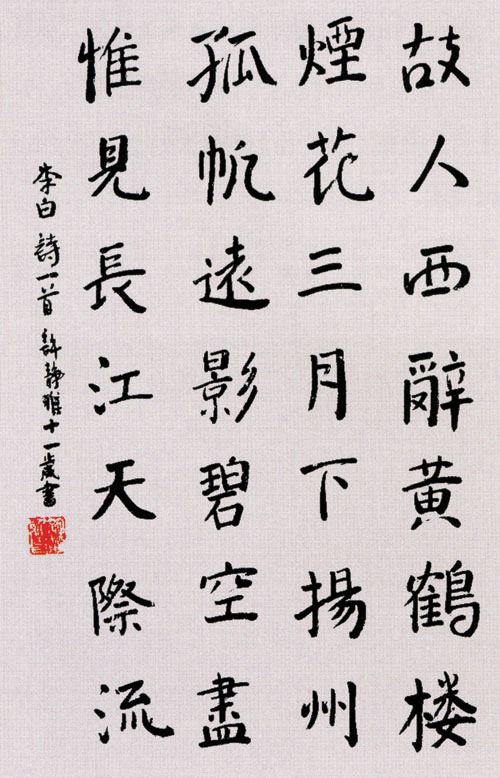 故人西辭黃鶴楼
煙花三月下揚州
孤帆遠影碧空盡
惟見長江天際流
李白詩一首 許靜雅十一歲書